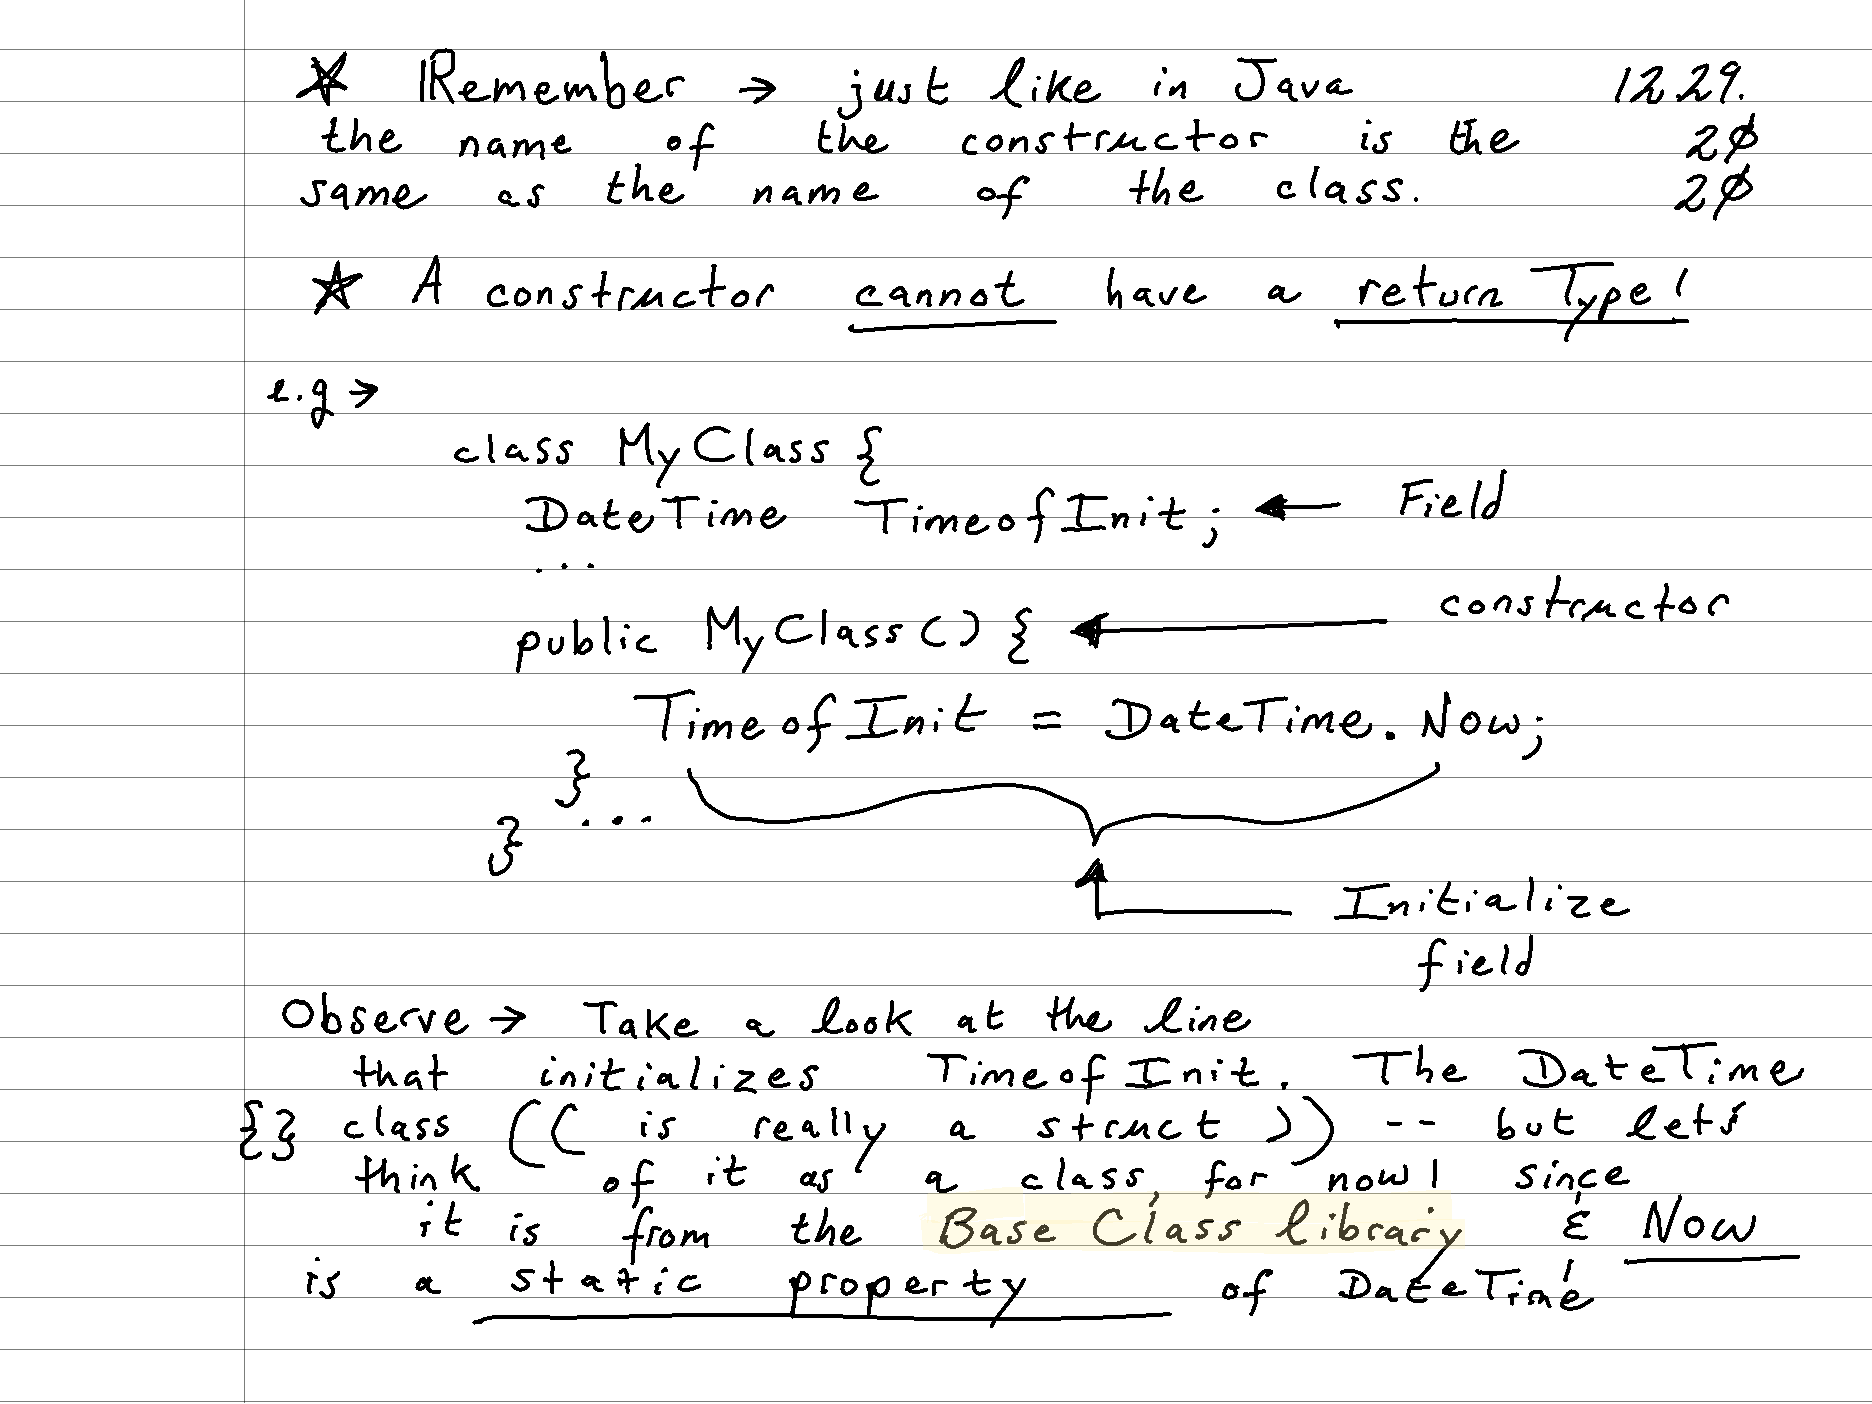 ☆ Remember → just like in Java 12.29.
the name of the constructor is the 2∅
same as the name of the class. 2∅
☆ A constructor cannot have a return Type!
e.g →
class MyClass {
DateTime TimeofInit; ← Field
...
public MyClass() { ← constructor
TimeofInit = DateTime.Now;
}
...
}
Initialize
field
Observe → Take a look at the line
that initializes TimeofInit. The DateTime
{} class (( is really a struct )) -- but lets
think of it as a class, for now! since
it is from the Base Class library & Now
is a static property of DateTime